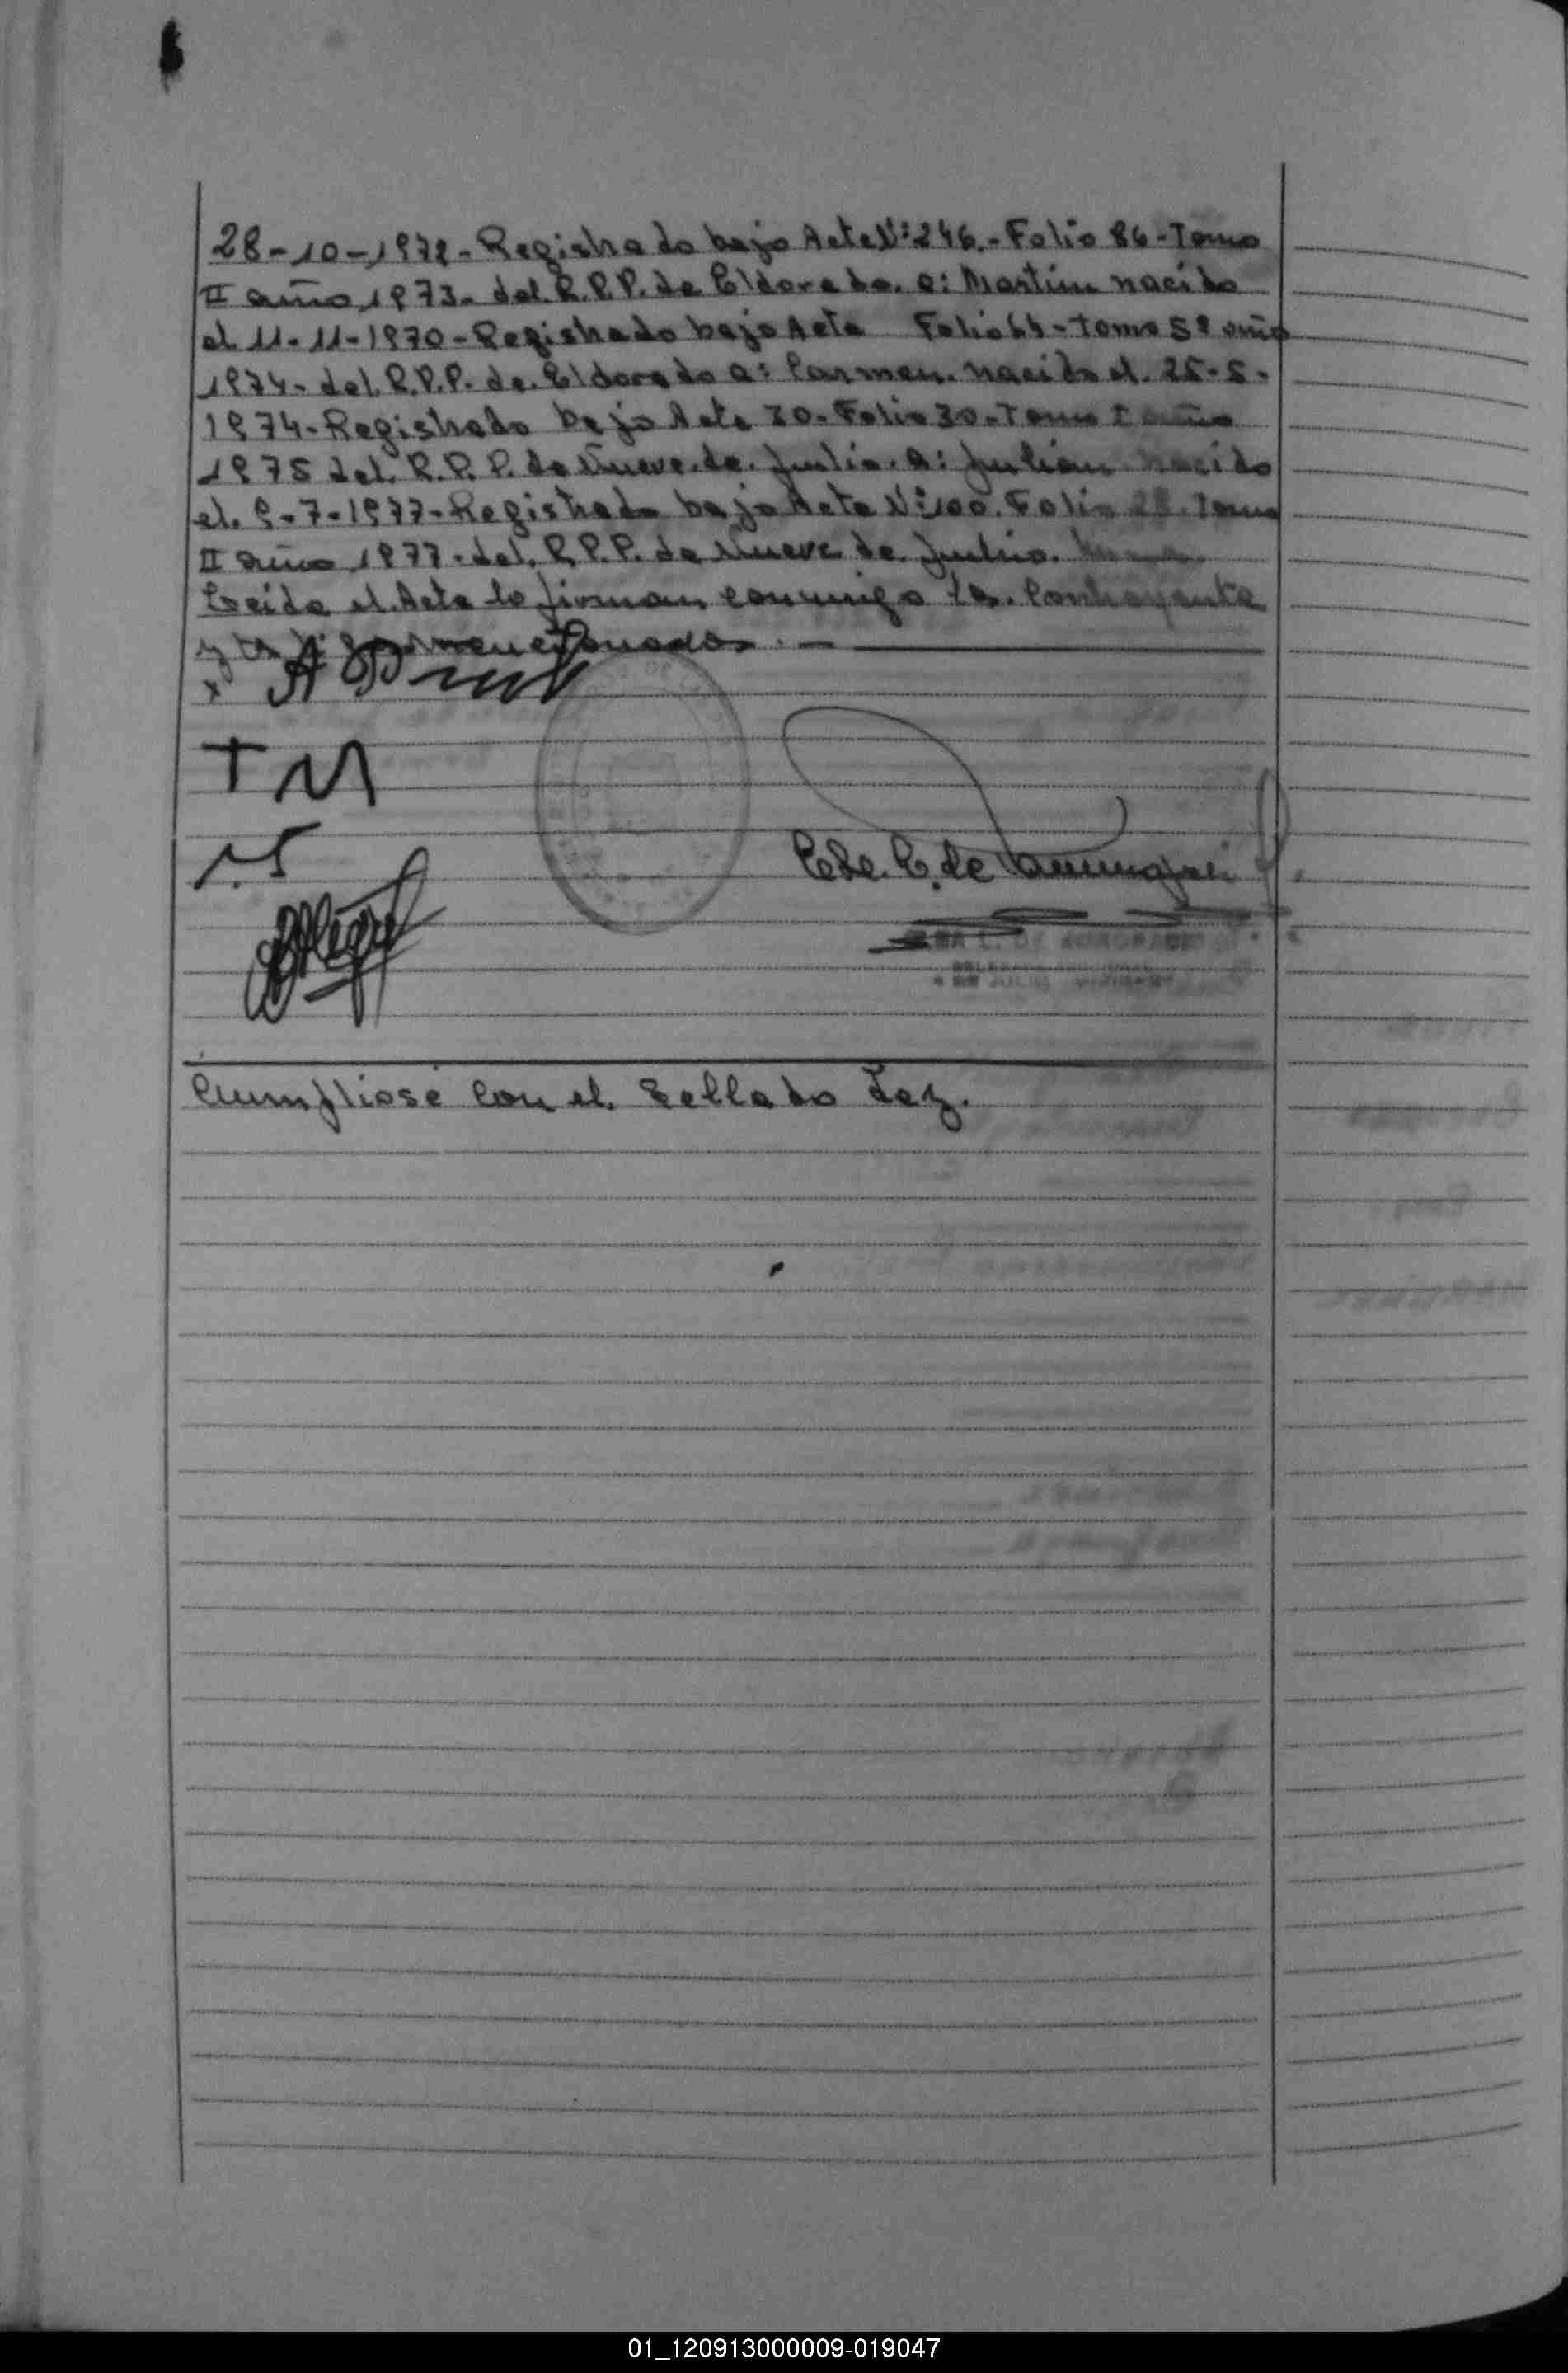 28-10-1972- Registrado bajo Acta Nº 246.- Folio 86-Tomo
II año 1973.- del. R.P.P. de Eldorado. a: Martin nacido
el 11-11-1970-Registrado bajo Acta Folio 64-Tomo 5º año
1974- del. R.P.P. de. Eldorado a: Carmen. nacida el. 25-5-
1974-Registrado bajo Acta 30-Folio 30-Tomo I año
1975 del. R.P.P. de Nueve. de. Julio. a: Julián nacido
el. 9-7-1977-Registrado bajo Acta Nº 100. Folio Tomo
II año 1977-del. R.P.P. de Nueve de. Julio.
Leida el. Acta la firman conmigo los. Contrayente
y mencionados. -
x
TM
C. de
Cumpliose con el. Sellado Ley.
01_120913000009-019047